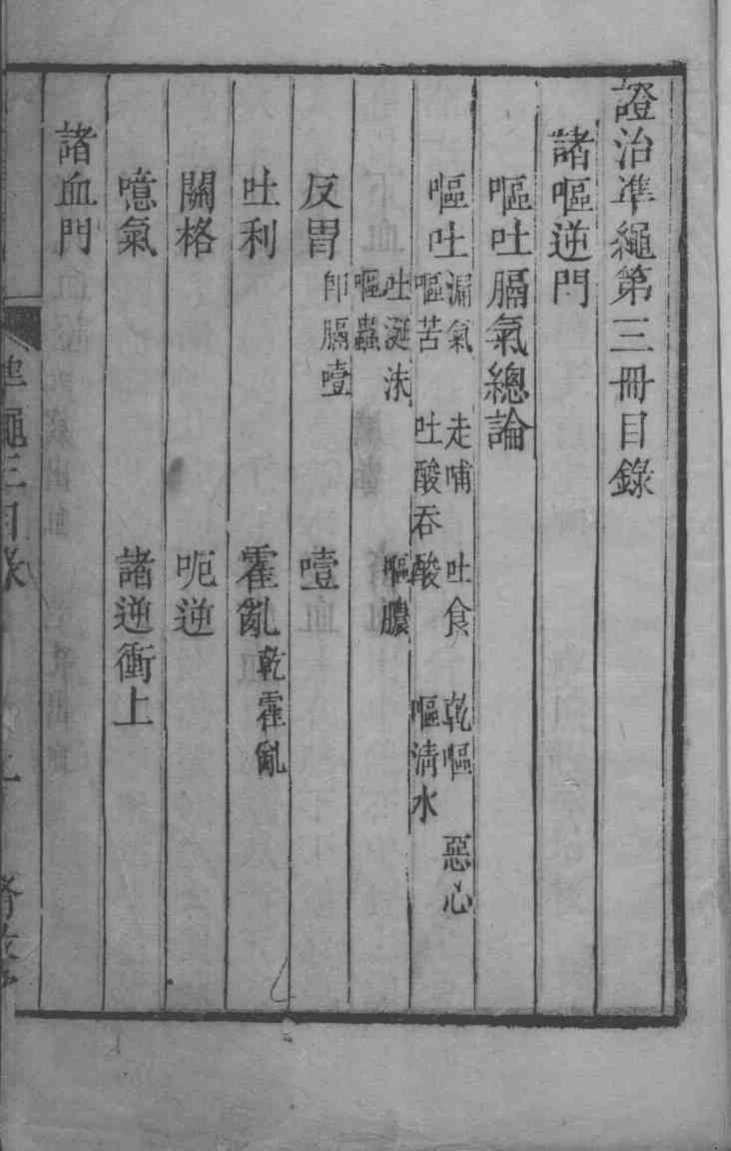 證治準繩第三冊目錄
諸嘔逆門
嘔吐膈氣總論
嘔吐 漏氣 走哺 吐食 乾嘔 惡心
嘔苦 吐酸吞酸 嘔清水
吐涎沫 嘔膿
嘔蟲
反胃 即膈噎 噎
吐利 霍亂 乾霍亂
關格 呃逆
噫氣 諸逆衝上
諸血門
準繩三目錄